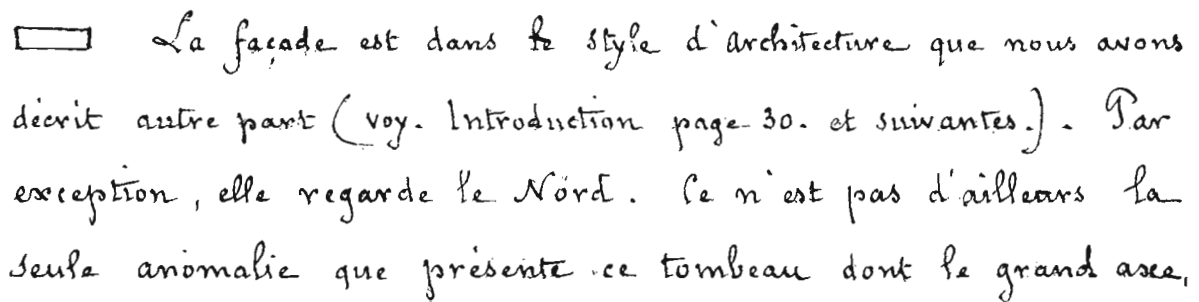 La façade est dans le style d'architecture que nous avons
décrit autre part (voy. Introduction page 30. et suivantes.). Par
exception, elle regarde le Nord. Ce n'est pas d'ailleurs la
seule anomalie que présente ce tombeau dont le grand axe,